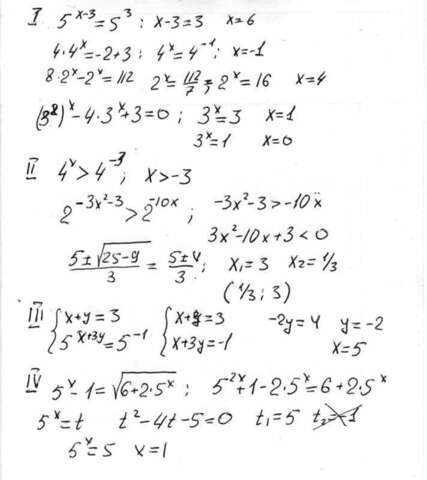 I 5^{x-3}=5^3 : x-3=3 x=6
4·4^x=-2+3 ; 4^x=4^{-1} ; x=-1
8·2^x-2^x=112 2^x=112/7 ; 2^x=16 x=4
(3^2)^x-4·3^x+3=0 ; 3^x=3 x=1
3^x=1 x=0
II 4^x>4^{-3} ; x>-3
2^{-3x^2-3}>2^{-10x} ; -3x^2-3>-10x
3x^2-10x+3<0
(5±√(25-9))/3=(5±4)/3 ; x_1=3 x_2=1/3
(1/3 ; 3)
III {x+y=3 {x+y=3 -2y=4 y=-2
{5^{x+3y}=5^{-1} {x+3y=-1 x=5
IV 5^x-1=√(6+2·5^x) ; 5^{2x}+1-2·5^x=6+2·5^x
5^x=t t^2-4t-5=0 t_1=5 t_2=-1
5^x=5 x=1